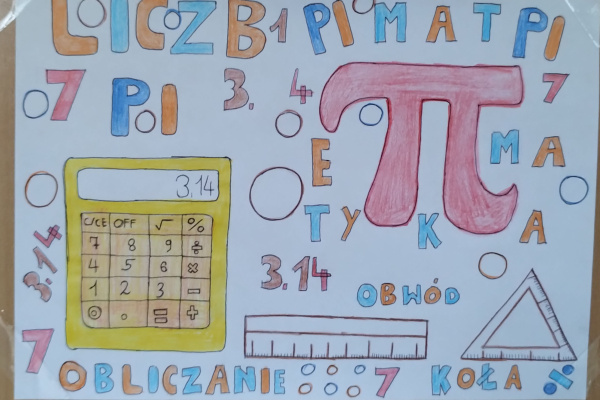 LICZBA PI MAT PI
7 PI 3.14 7
E MA
TYKA
3.14
C/CE OFF √ %
7 8 9 ÷
4 5 6 ×
1 2 3 -
0 . = +
3.14
3.14
OBWÓD
7 OBLICZANIE 7 KOŁA %